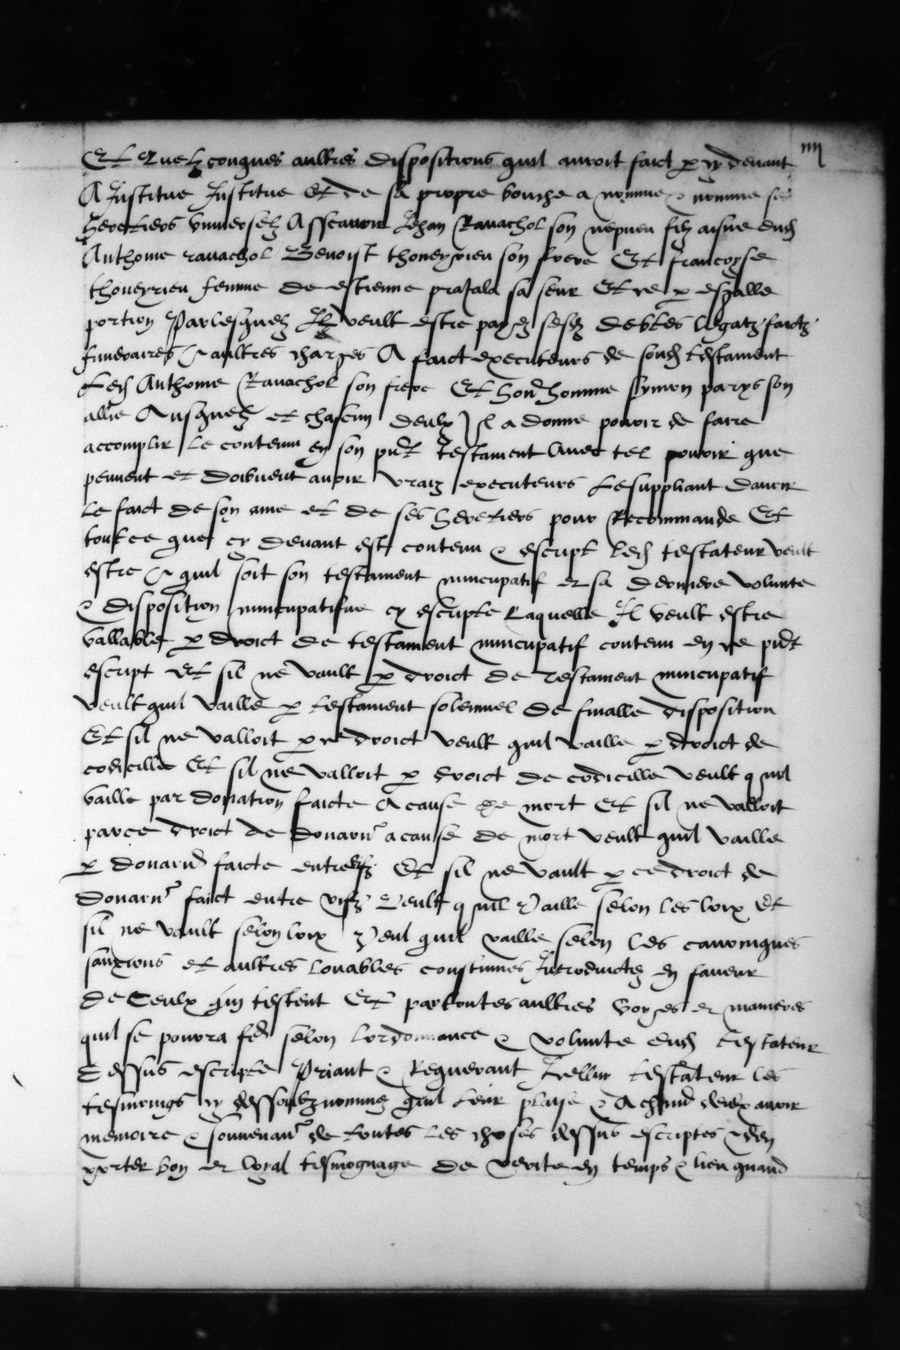 iiii
Et quelzconques aultres dispositions quil auroit faict p cy devant
A Institue Institue Et de sa propre bouche a nomme & nomme ses
heretiers universelz Asscavoir Jehan Ravachol son nepveu filz aisne dud
Anthoine ravachol Benoist thoneyrieu son frere Et francoyse
thoneyrieu femme de estienne sa seur Et ce p esgalle
portion Parlesquelz Il veult estre payez sesd debtes legatz faictz
funeraires & aultres charges A faict executeurs de sond testament
Led Anthoine Ravachol son frere Et hon homme symon parys son
allie Ausquelz et chascun deulx Il a donne povoir de faire
accomplir le contenu en son pnt testament Avec tel povoir que
peuvent et doibvent avoir vraiz executeurs Le suppliant davoir
Le faict de son ame et de ses heretiers pour Recommande Et
tout ce que cy devant est contenu & escript led testateur veult
estre & quil soit son testament nuncupatif et sa derniere volunte
& disposition nuncupatifve cy escripte Laquelle Il veult estre
vallable p droict de testament nuncupatif contenu en ce pnt
escript Et sil ne vault p droict de testament nuncupatif
veult quil vaille p testament solemnel de finalle disposition
Et sil ne valloit p ce droict veult quil vaille p droict de
codicille Et sil ne valloit p droict de codicille veult quil
vaille par donation faicte A cause de mort Et sil ne valloit
par ce droict de donaon a cause de mort veult quil vaille
p donaon faicte entre vifz Et sil ne vault p ce droict de
donaon faict entre vifz Veult quil Vaille selon les loix Et
sil ne vault selon loix Veul quil vaille selon les canoniques
sanxions et aultres louables coustumes Introductes en faveur
de Ceulx qui testent Et par toutes aultres voyes et manieres
quil se pourra fe selon lordonnance & volunte dud testateur
dessus escripte Priant & Requerant Icelluy testateur les
tesmoings cy dessoubz nommez quil leur plaise & A chun deulx avoir
memoire & souvenan de toutes les choses dessus escriptes & den
porter bon et loyal tesmognage de verite en temps & lieu quand